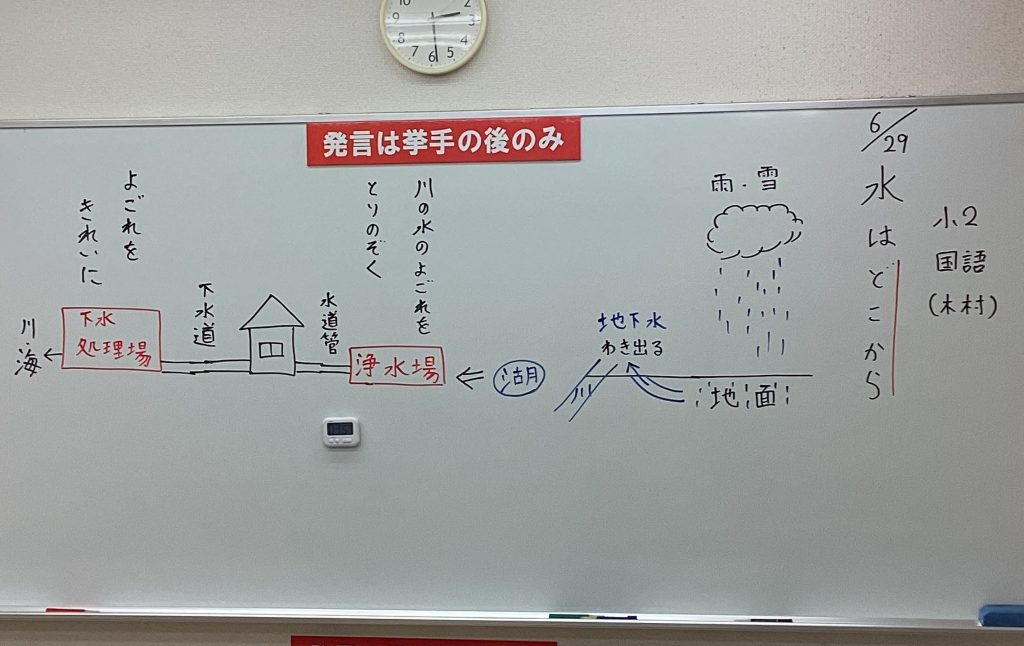 発言は挙手の後のみ
小2
国語
(木村)
6/29
水はどこから
雨・雪
地下水
わき出る
地面
川
湖
川の水のよごれを
とりのぞく
浄水場
水道管
下水道
よごれを
きれいに
下水
処理場
川・海
10
2
9
3
8
4
7
6
5